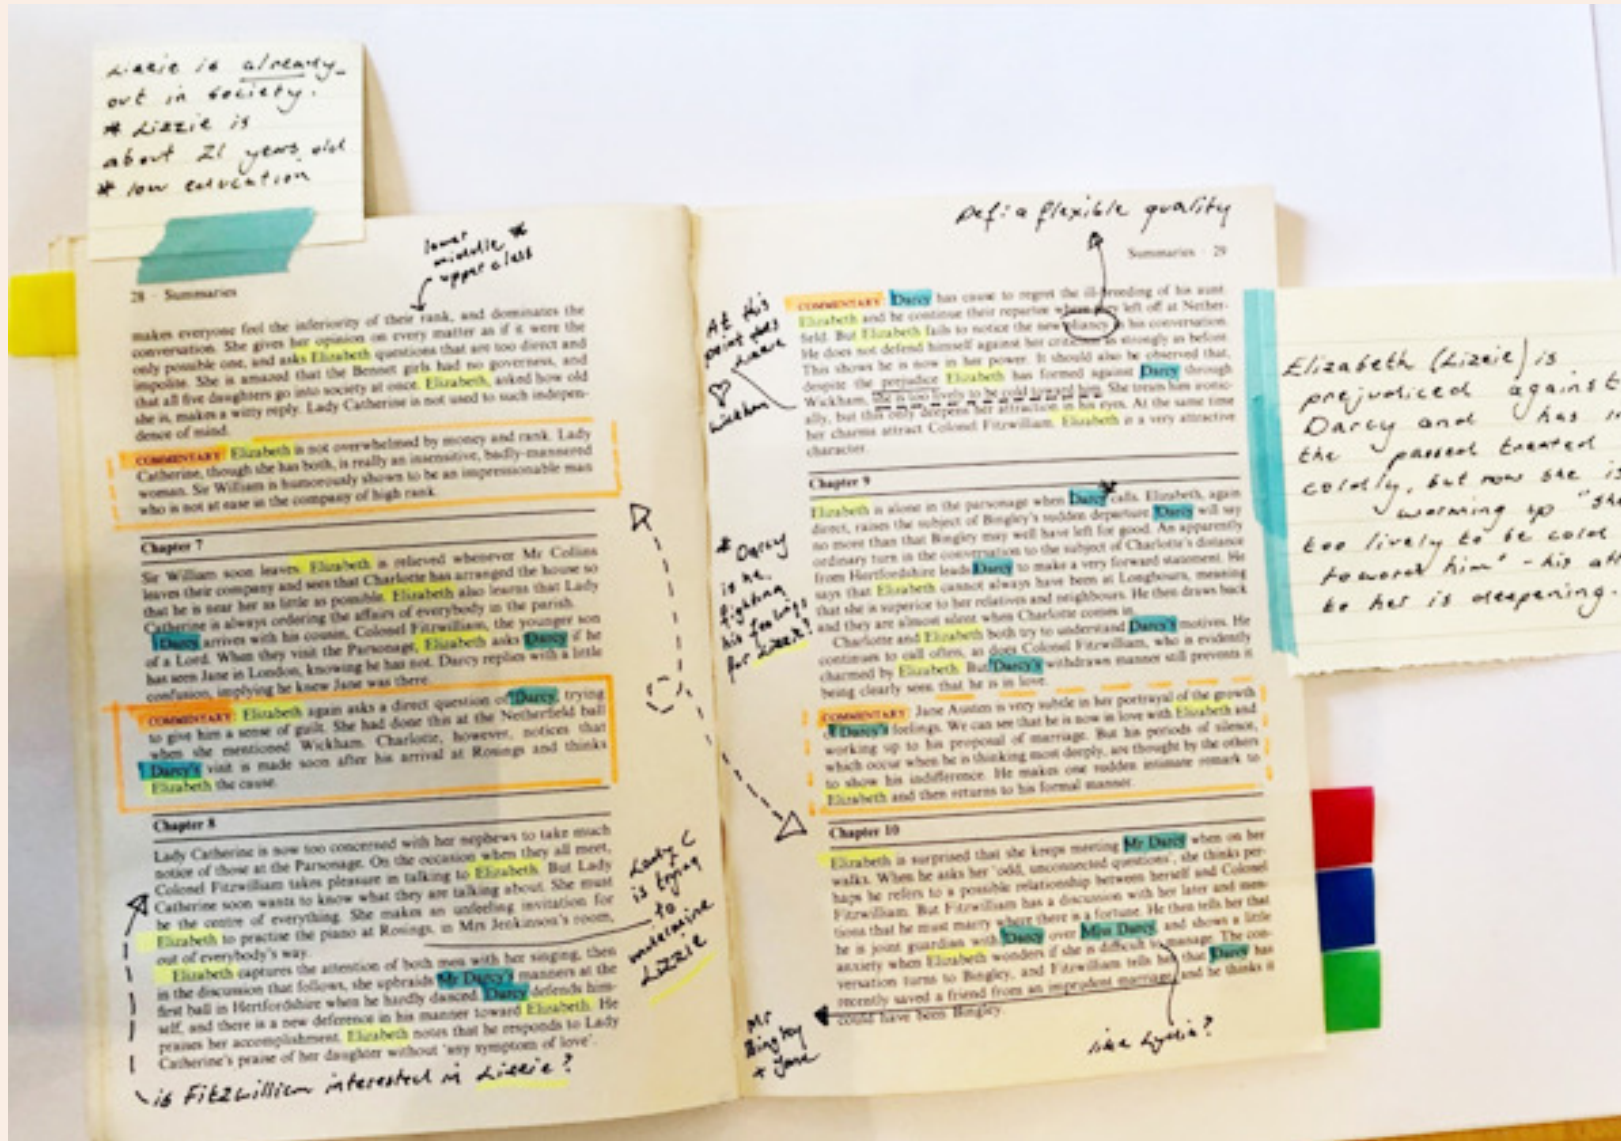 Lizzie is already
out in society.
* Lizzie is
about 21 years old
* low education
lower
middle *
upper class
28 Summaries
makes everyone feel the inferiority of their rank, and dominates the
conversation. She gives her opinion on every matter as if it were the
only possible one, and asks Elizabeth questions that are too direct and
impolite. She is amazed that the Bennet girls had no governess, and
that all five daughters go into society at once. Elizabeth, asked how old
she is, makes a witty reply. Lady Catherine is not used to such indepen-
dence of mind.
COMMENTARY: Elizabeth is not overwhelmed by money and rank. Lady
Catherine, though she has both, is really an insensitive, badly-mannered
woman. Sir William is humorously shown to be an impressionable man
who is not at ease in the company of high rank.
Chapter 7
Sir William soon leaves. Elizabeth is relieved whenever Mr Collins
leaves their company and sees that Charlotte has arranged the house so
that he is near her as little as possible. Elizabeth also learns that Lady
Catherine is always ordering the affairs of everybody in the parish.
Darcy arrives with his cousin, Colonel Fitzwilliam, the younger son
of a Lord. When they visit the Parsonage, Elizabeth asks Darcy if he
has seen Jane in London, knowing he has not. Darcy replies with a little
confusion, implying he knew Jane was there.
COMMENTARY: Elizabeth again asks a direct question of Darcy, trying
to give him a sense of guilt. She had done this at the Netherfield ball
when she mentioned Wickham. Charlotte, however, notices that
Darcy's visit is made soon after his arrival at Rosings and thinks
Elizabeth the cause.
Chapter 8
Lady Catherine is now too concerned with her nephews to take much
notice of those at the Parsonage. On the occasion when they all meet,
Colonel Fitzwilliam takes pleasure in talking to Elizabeth. But Lady
Catherine soon wants to know what they are talking about. She must
be the centre of everything. She makes an unfeeling invitation for
Elizabeth to practise the piano at Rosings, in Mrs Jenkinson's room,
out of everybody's way.
Elizabeth captures the attention of both men with her singing, then
in the discussion that follows, she upbraids Mr Darcy's manners at the
first ball in Hertfordshire when he hardly danced. Darcy defends him-
self, and there is a new deference in his manner toward Elizabeth. He
praises her accomplishment. Elizabeth notes that he responds to Lady
Catherine's praise of her daughter without 'any symptom of love'.
is Fitzwilliam interested in Lizzie?
Lady C
is trying
to
undermine
Lizzie
Def: a flexible quality
Summaries 29
At this
point does
Lizzie
♡
Wickham
COMMENTARY: Darcy has cause to regret the ill-breeding of his aunt.
Elizabeth and he continue their repartee where left off at Nether-
field. But Elizabeth fails to notice the new pliancy in his conversation.
He does not defend himself against her criticism as strongly as before.
This shows he is now in her power. It should also be observed that,
despite the prejudice Elizabeth has formed against Darcy through
Wickham, she is too lively to be cold toward him. She treats him ironic-
ally, but this only deepens her attraction in his eyes. At the same time
her charms attract Colonel Fitzwilliam. Elizabeth is a very attractive
character.
Chapter 9
Elizabeth is alone in the parsonage when Darcy calls. Elizabeth, again
direct, raises the subject of Bingley's sudden departure. Darcy will say
no more than that Bingley may well have left for good. An apparently
ordinary turn in the conversation to the subject of Charlotte's distance
from Hertfordshire leads Darcy to make a very forward statement. He
says that Elizabeth cannot always have been at Longbourn, meaning
that she is superior to her relatives and neighbours. He then draws back
and they are almost silent when Charlotte comes in.
Charlotte and Elizabeth both try to understand Darcy's motives. He
continues to call often, as does Colonel Fitzwilliam, who is evidently
charmed by Elizabeth. But Darcy's withdrawn manner still prevents it
being clearly seen that he is in love.
* Darcy
is he
fighting
his feelings
for Lizzie?
COMMENTARY: Jane Austen is very subtle in her portrayal of the growth
of Darcy's feelings. We can see that he is now in love with Elizabeth and
working up to his proposal of marriage. But his periods of silence,
which occur when he is thinking most deeply, are thought by the others
to show his indifference. He makes one sudden intimate remark to
Elizabeth and then returns to his formal manner.
Chapter 10
Elizabeth is surprised that she keeps meeting Mr Darcy when on her
walks. When he asks her 'odd, unconnected questions', she thinks per-
haps he refers to a possible relationship between herself and Colonel
Fitzwilliam. But Fitzwilliam has a discussion with her later and men-
tions that he must marry where there is a fortune. He then tells her that
he is joint guardian with Darcy over Miss Darcy, and shows a little
anxiety when Elizabeth wonders if she is difficult to manage. The con-
versation turns to Bingley, and Fitzwilliam tells her that Darcy has
recently saved a friend from an imprudent marriage and he thinks it
could have been Bingley.
Mr
Bingley
+ Jane
like Lydia?
Elizabeth (Lizzie) is
prejudiced against
Darcy and has in
the passed treated
coldly, but now she is
warming up "she
too lively to be cold
toward him" - his
to her is deepening.